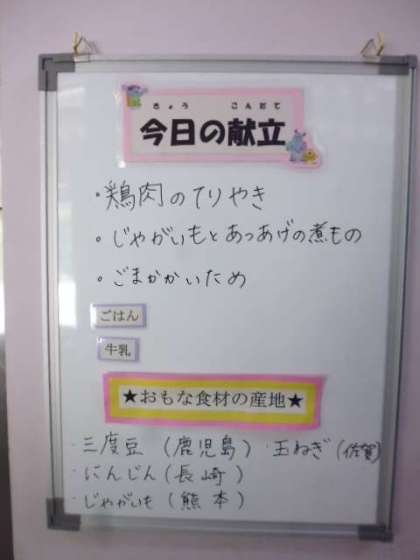 きょう こんだて
今日の献立
・鶏肉のてりやき
・じゃがいもとあつあげの煮もの
・ごまかかいため
ごはん
牛乳
★おもな食材の産地★
・三度豆(鹿児島)・玉ねぎ(佐賀)
・にんじん(長崎)
・じゃがいも(熊本)